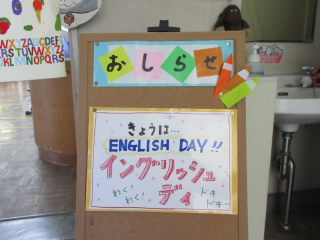 おしらせ
きょうは…
ENGLISH DAY!!
イングリッシュ
ディ
わく! わく!
ドキ ドキ